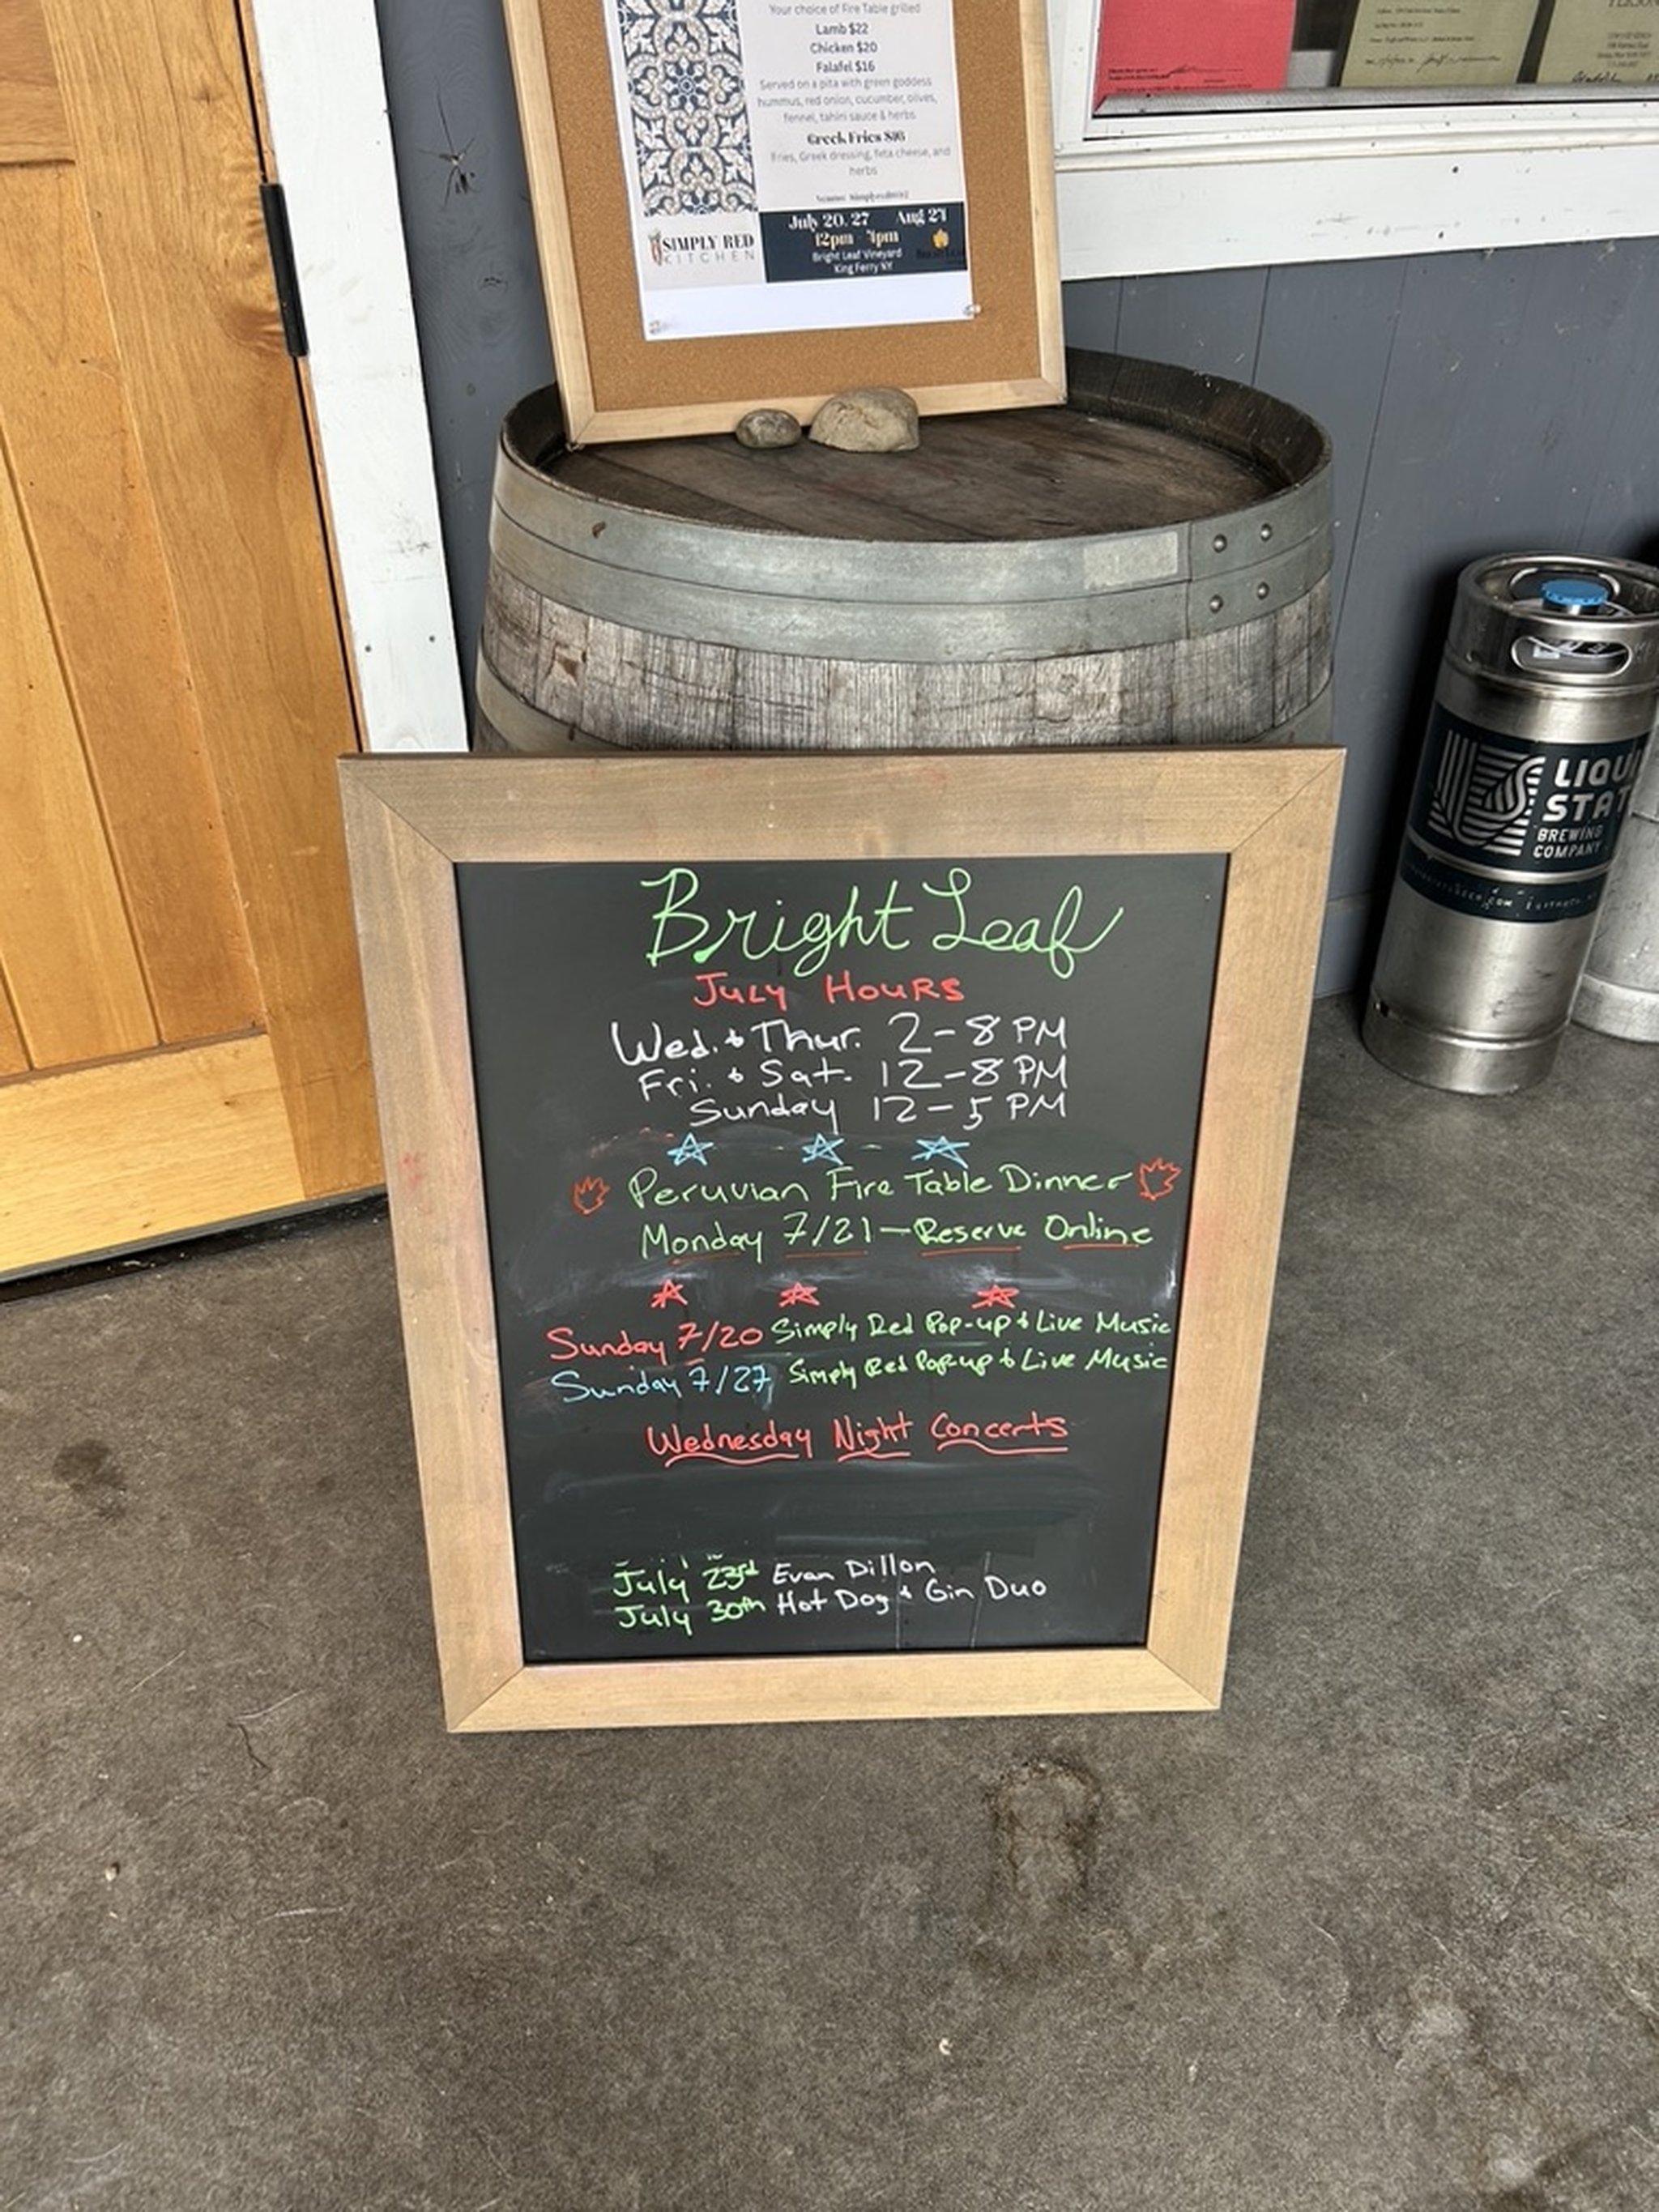 Your choice of Fire Table grilled
Lamb $22
Chicken $20
Falafel $16
Served on a pita with green goddess
hummus, red onion, cucumber, olives,
fennel, tahini sauce & herbs
Greek Fries $16
Fries, Greek dressing, feta cheese, and
herbs
SIMPLY RED
KITCHEN
July 20, 27 Aug 24
12pm - 4pm
Bright Leaf Vineyard
King Ferry NY
LIQUI
STAT
BREWING
COMPANY
Bright Leaf
July Hours
Wed. & Thur. 2-8 PM
Fri. & Sat. 12-8 PM
Sunday 12-5 PM
Peruvian Fire Table Dinner
Monday 7/21 - Reserve Online
Sunday 7/20 Simply Red Pop-up & Live Music
Sunday 7/27 Simply Red Pop-up & Live Music
Wednesday Night Concerts
July 23rd Evan Dillon
July 30th Hot Dog & Gin Duo